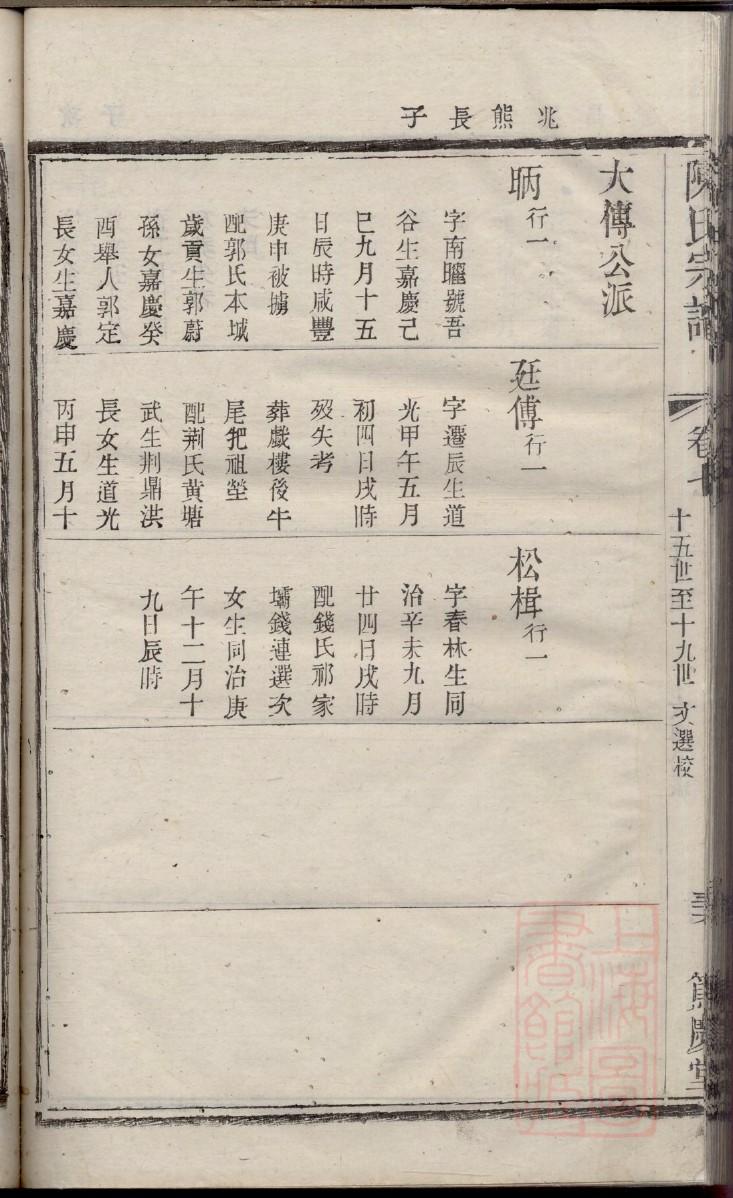 兆熊長子
大傳公派
昞行一
字南曬號吾
谷生嘉慶己
巳九月十五
日辰時咸豐
庚申被擄
配郭氏本城
歲貢生郭蔚
孫女嘉慶癸
酉舉人郭定
長女生嘉慶
廷傅行一
字遷辰生道
光甲午五月
初四日戌時
歿失考
葬戲樓後牛
尾把祖塋
配荊氏黃塘
武生荊鼎洪
長女生道光
丙申五月十
松楫行一
字春林生同
治辛未九月
廿四日戌時
配錢氏祁家
壩錢連選次
女生同治庚
午十二月十
九日辰時
陳氏宗譜
卷七
十五世至十九世
文選校
篤慶堂
上海圖
書館藏